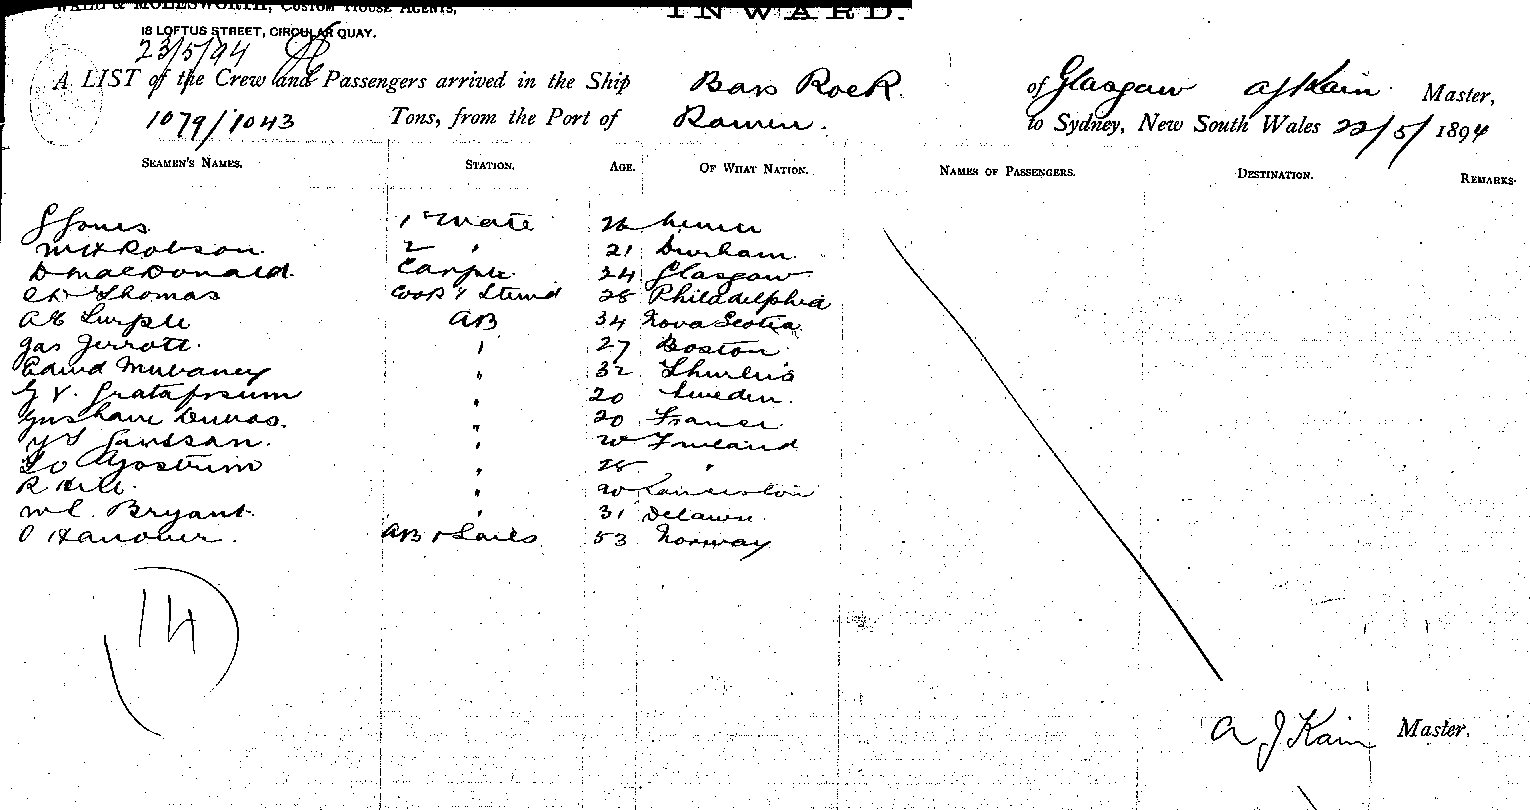 MOLESWORTH, CUSTOM HOUSE AGENTS,
INWARD.
18 LOFTUS STREET, CIRCULAR QUAY.
23/5/94
A LIST of the Crew and Passengers arrived in the Ship Bass Rock of Glasgow A J Kain Master,
1079/1043 Tons, from the Port of to Sydney, New South Wales 22/5/1894
SEAMEN'S NAMES. STATION. AGE. OF WHAT NATION. NAMES OF PASSENGERS. DESTINATION. REMARKS.
J Jones 1 Mate
Wm H Robson 2 " 21 Durham
D MacDonald Carptr 24 Glasgow
Thomas Cook & Steward 28 Philadelphia
AB 34 Nova Scotia
Jas Jerrott " 27 Boston
Edwd Mulvaney " 32
" 20 Sweden
" 20 France
" Finland
" 28 "
R Hill " Launceston
W C. Bryant " 31
O Hanover AB & Sails 53 Norway
14
A J Kain Master.